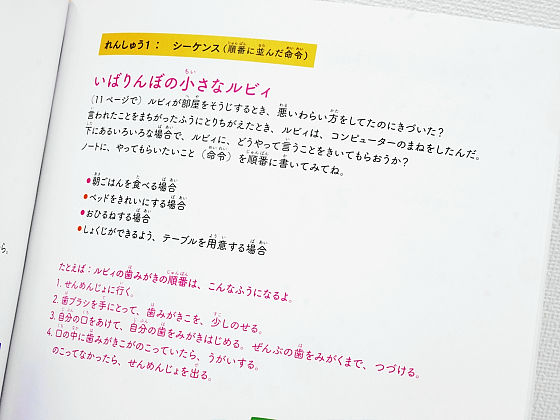 れんしゅう1： シーケンス（順番に並んだ命令）
いばりんぼの小さなルビィ
（11ページで）ルビィが部屋をそうじするとき、悪いわらい方をしてたのにきづいた？
言われたことをまちがったふうにとりちがえたとき、ルビィは、コンピューターのまねをしたんだ。
下にあるいろいろな場合で、ルビィに、どうやって言うことをきいてもらおうか？
ノートに、やってもらいたいこと（命令）を順番に書いてみてね。
●朝ごはんを食べる場合
●ベッドをきれいにする場合
●おひるねする場合
●しょくじができるよう、テーブルを用意する場合
たとえば：ルビィの歯みがきの順番は、こんなふうになるよ。
1. せんめんじょに行く。
2. 歯ブラシを手にとって、歯みがきこを、少しのせる。
3. 自分の口をあけて、自分の歯をみがきはじめる。ぜんぶの歯をみがくまで、つづける。
4. 口の中に歯みがきこがのこっていたら、うがいする。
のこってなかったら、せんめんじょを出る。
ら。